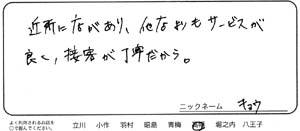 近所に店があり、他店よりもサービスが
良く、接客が丁寧だから。
ニックネーム キョウ
よく利用されるお店を
○で囲んでください。 立川 小作 羽村 昭島 青梅 堀之内 八王子